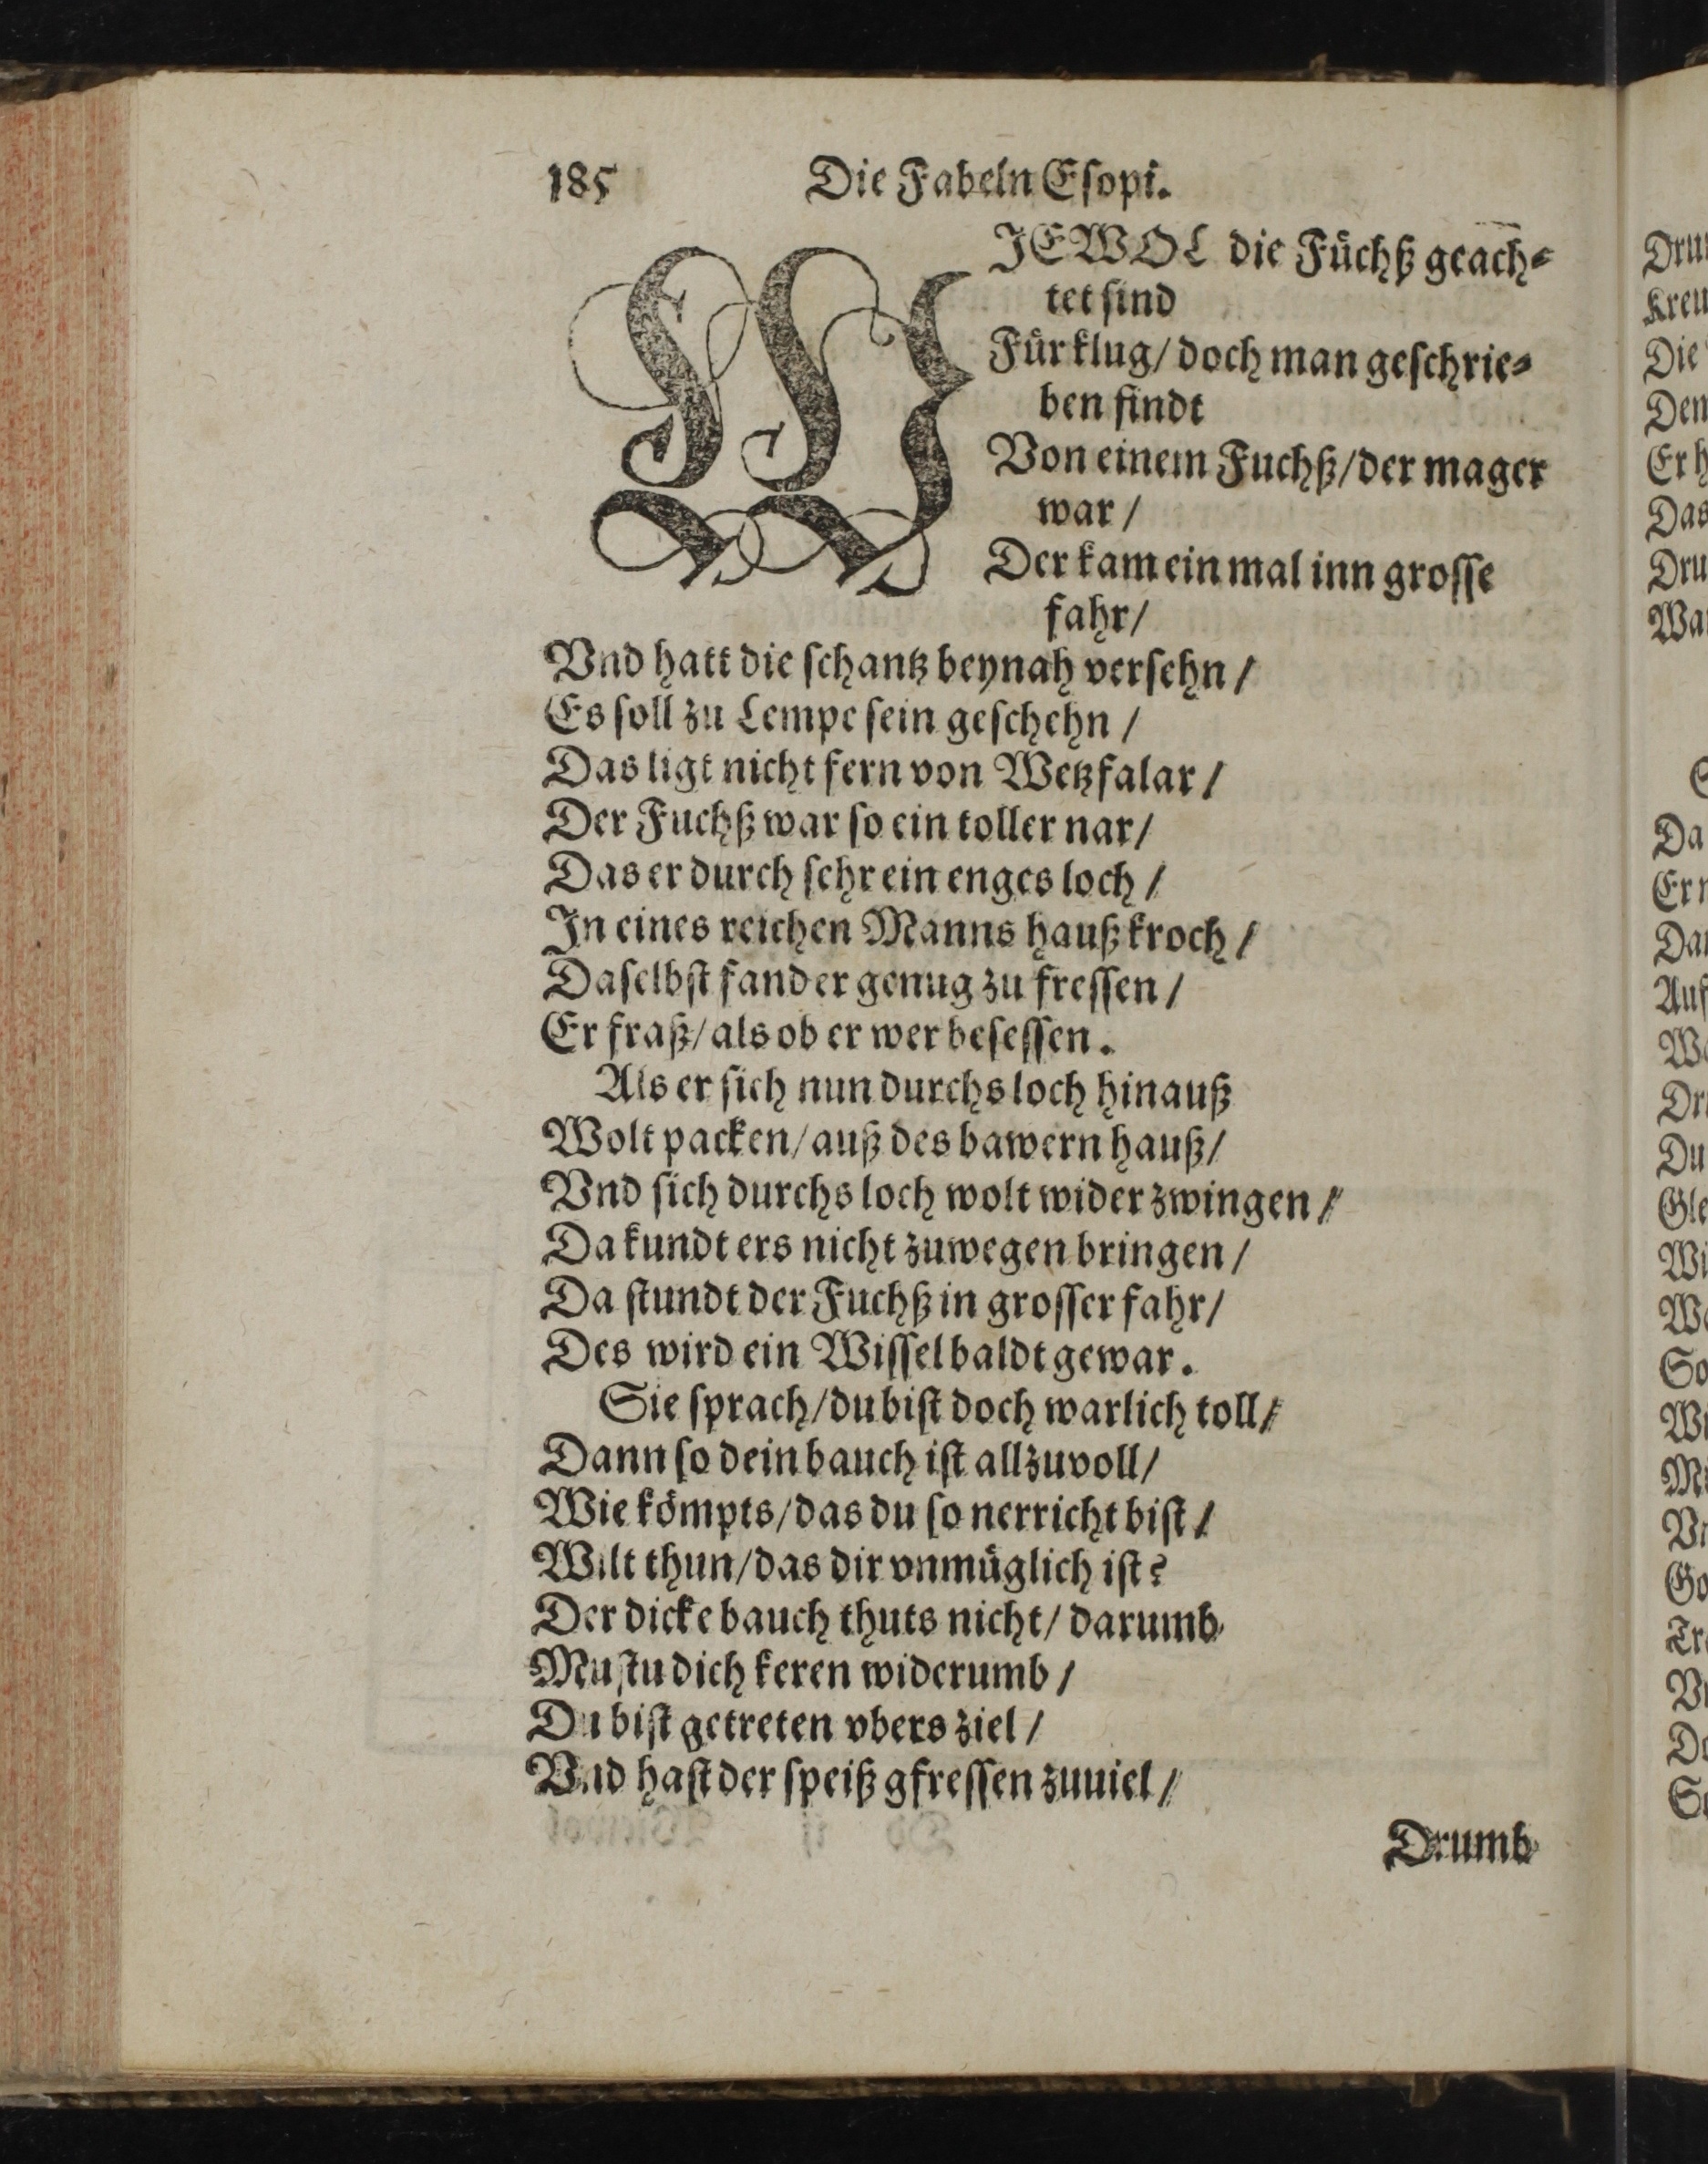 185 Die Fabeln Eſopi.
WJEWOL die Füchß geach-
tet ſind
Für klug/ doch man geſchrie-
ben findt
Von einem Fuchß/ der mager
war /
Der kam ein mal inn groſſe
fahr/
Vnd hatt die ſchantz beynah verſehn /
Es ſoll zu Lempe ſein geſchehn /
Das ligt nicht fern von Wetzfalar /
Der Fuchß war ſo ein toller nar/
Das er durch ſehr ein enges loch /
In eines reichen Manns hauß kroch /
Daſelbſt fand er genug zu freſſen /
Er fraß/ als ob er wer beſeſſen.
Als er ſich nun durchs loch hinauß
Wolt packen/ auß des bawern hauß/
Vnd ſich durchs loch wolt wider zwingen /
Da kundt ers nicht zuwegen bringen /
Da ſtundt der Fuchß in groſſer fahr/
Des wird ein Wiſſel baldt gewar.
Sie ſprach/ du biſt doch warlich toll/
Dann ſo dein bauch iſt allzuvoll/
Wie kömpts/ das du ſo nerricht biſt /
Wilt thun/ das dir vnmüglich iſt?
Der dicke bauch thuts nicht/ darumb
Muſtu dich keren widerumb /
Du biſt getreten vbers ziel /
Vnd haſt der ſpeiß gfreſſen zuuiel /
Drumb